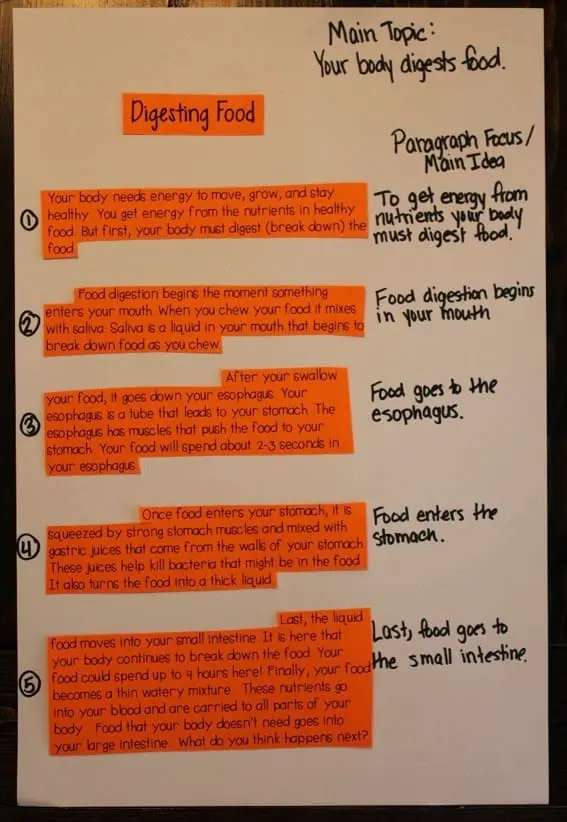 Main Topic:
Your body digests food.
Digesting Food
Paragraph Focus/
Main Idea
1
Your body needs energy to move, grow, and stay
healthy. You get energy from the nutrients in healthy
food. But first, your body must digest (break down) the
food.
To get energy from
nutrients your body
must digest food.
2
Food digestion begins the moment something
enters your mouth. When you chew your food it mixes
with saliva. Saliva is a liquid in your mouth that begins to
break down food as you chew.
Food digestion begins
in your mouth
3
After your swallow
your food, it goes down your esophagus. Your
esophagus is a tube that leads to your stomach. The
esophagus has muscles that push the food to your
stomach. Your food will spend about 2-3 seconds in
your esophagus.
Food goes to the
esophagus.
4
Once food enters your stomach, it is
squeezed by strong stomach muscles and mixed with
gastric juices that come from the walls of your stomach.
These juices help kill bacteria that might be in the food.
It also turns the food into a thick liquid.
Food enters the
stomach.
5
Last, the liquid
food moves into your small intestine. It is here that
your body continues to break down the food. Your
food could spend up to 4 hours here! Finally, your food
becomes a thin watery mixture. These nutrients go
into your blood and are carried to all parts of your
body. Food that your body doesn't need goes into
your large intestine. What do you think happens next?
Last, food goes to
the small intestine.